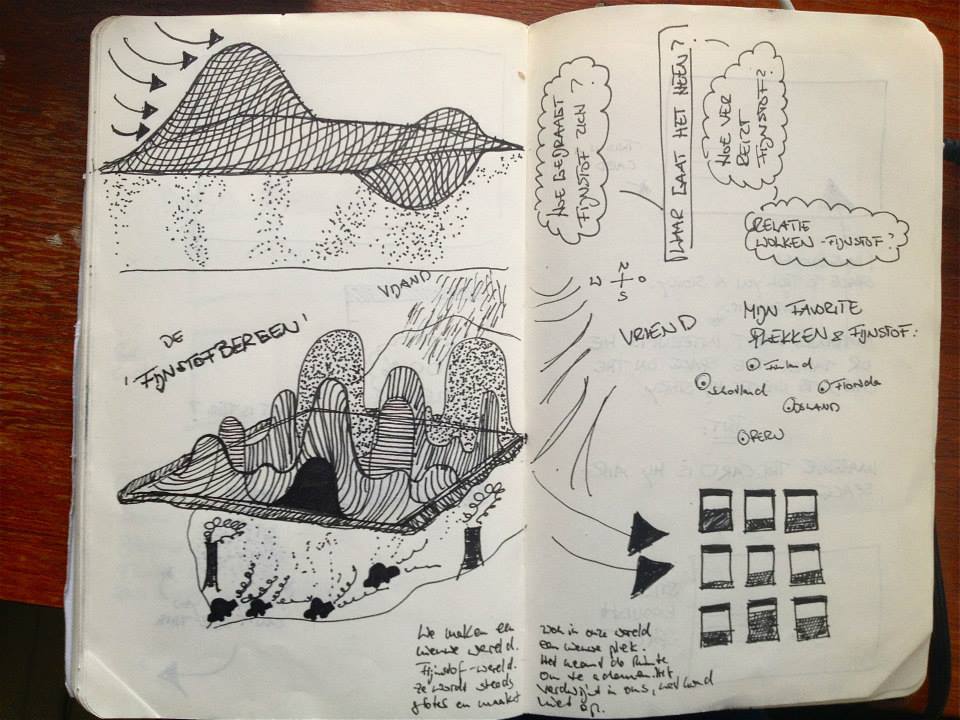 VIJAND
DE
'FIJNSTOFBERGEN'
We maken een
nieuwe wereld.
Fijnstof-wereld.
Ze wordt steeds
groter en maakt
HOE GEDRAAGT
FIJNSTOF ZICH?
WAAR GAAT HET HEEN?
HOE VER
REIZT
FIJNSTOF?
RELATIE
WOLKEN-FIJNSTOF?
N
W O
S
VRIEND
MIJN FAVORITE
PLEKKEN & FIJNSTOF:
Finland
Schotland
Fionda
IJSLAND
PERU
in onze wereld
een nieuwe plek.
Het neemt de Ruimte
om te ademen. Het
verdwijnt in ons,
niet op.